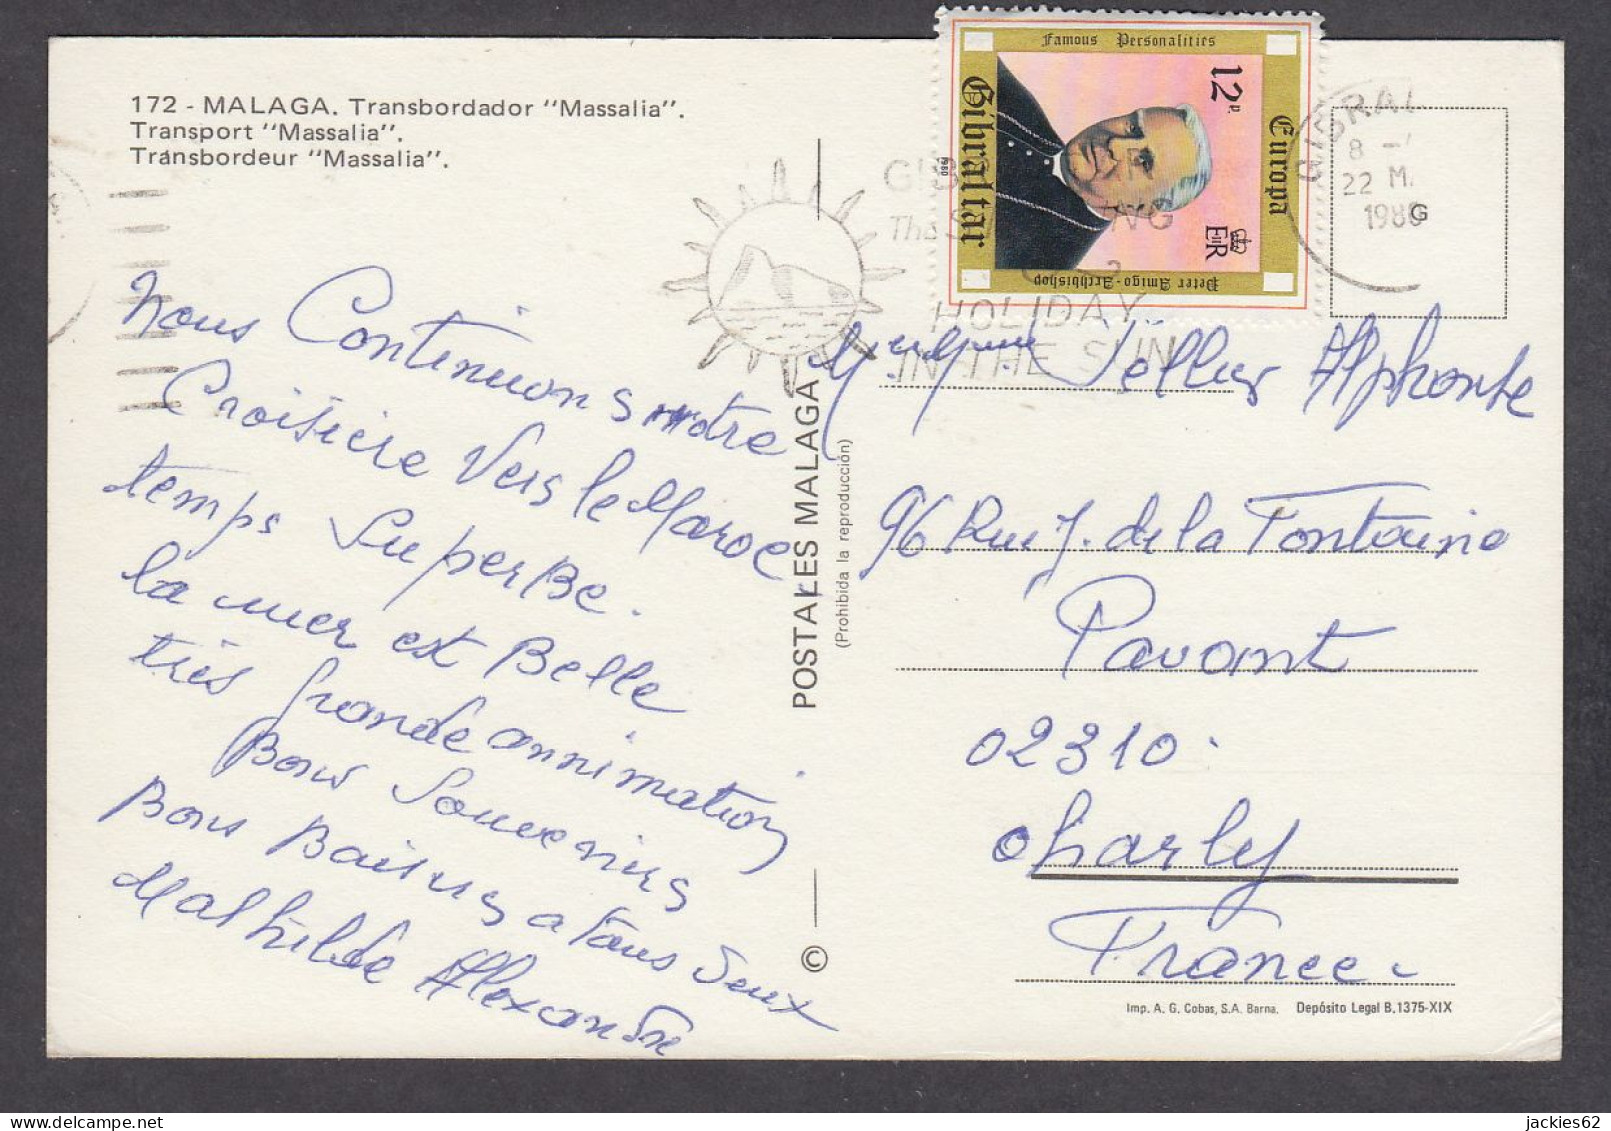 172 - MALAGA. Transbordador "Massalia".
Transport "Massalia".
Transbordeur "Massalia".
Nous Continuons notre
Croisiere Vers le Maroc
temps SuperBe.
la mer est Belle
très grande annimation
Bons Souvenirs
Bons Baisers a tous deux
Mathilde Alexandre
POSTALES MALAGA
(Prohibida la reproducción)
©
Famous Personalities
Gibraltar
1980
12p.
Europa
EIIR
Peter Amigo - Archbishop
HOLIDAY
IN THE SUN
22 M.
1980
G
Alphonse
96 Rue J. de la Fontaine
Pavant
02310.
Charly
France.
Imp. A. G. Cobas, S.A. Barna. Depósito Legal B.1375-XIX
jackies62